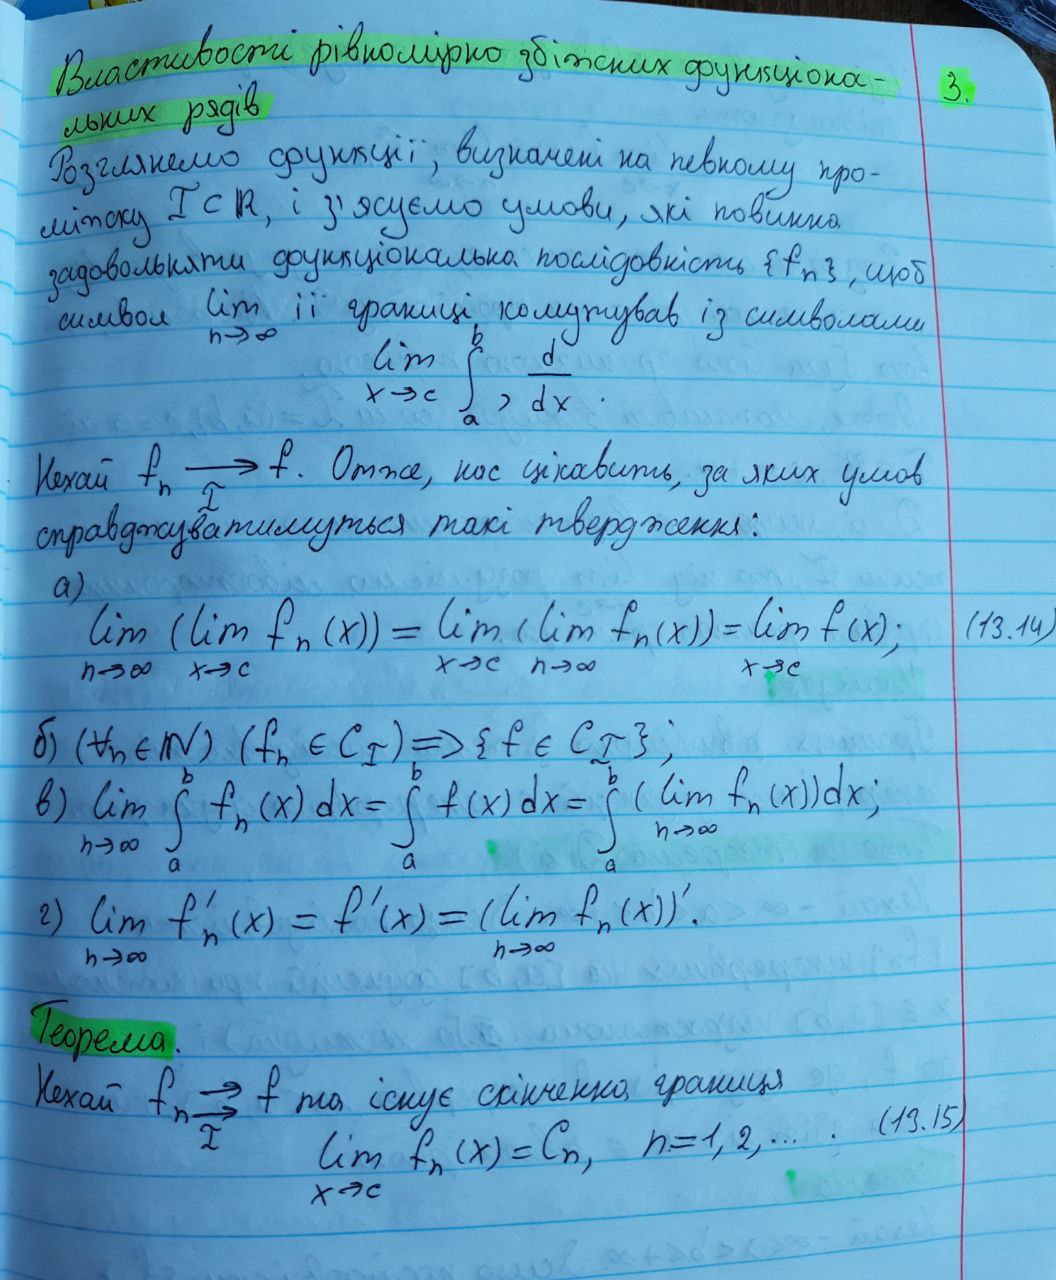 Властивості рівномірно збіжних функціона-
льних рядів
3.
Розглянемо функції, визначені на певному про-
міжку I ⊂ ℝ, і з'ясуємо умови, які повинна
задовольняти функціональна послідовність {fₙ}, щоб
символ lim n→∞ її границі комутував із символами
lim x→c ∫ₐᵇ, d/dx.
Нехай fₙ →_I f. Отже, нас цікавить, за яких умов
справджуватимуться такі твердження:
а)
lim n→∞ (lim x→c fₙ(x)) = lim x→c (lim n→∞ fₙ(x)) = lim x→c f(x); (13.14)
б) (∀n ∈ ℕ) (fₙ ∈ C_I) => {f ∈ C_I};
в) lim n→∞ ∫ₐᵇ fₙ(x) dx = ∫ₐᵇ f(x) dx = ∫ₐᵇ (lim n→∞ fₙ(x)) dx;
г) lim n→∞ f'ₙ(x) = f'(x) = (lim n→∞ fₙ(x))'.
Теорема.
Нехай fₙ ⇉_I f та існує скінченна границя
lim x→c fₙ(x) = Cₙ, n=1,2,... . (13.15)